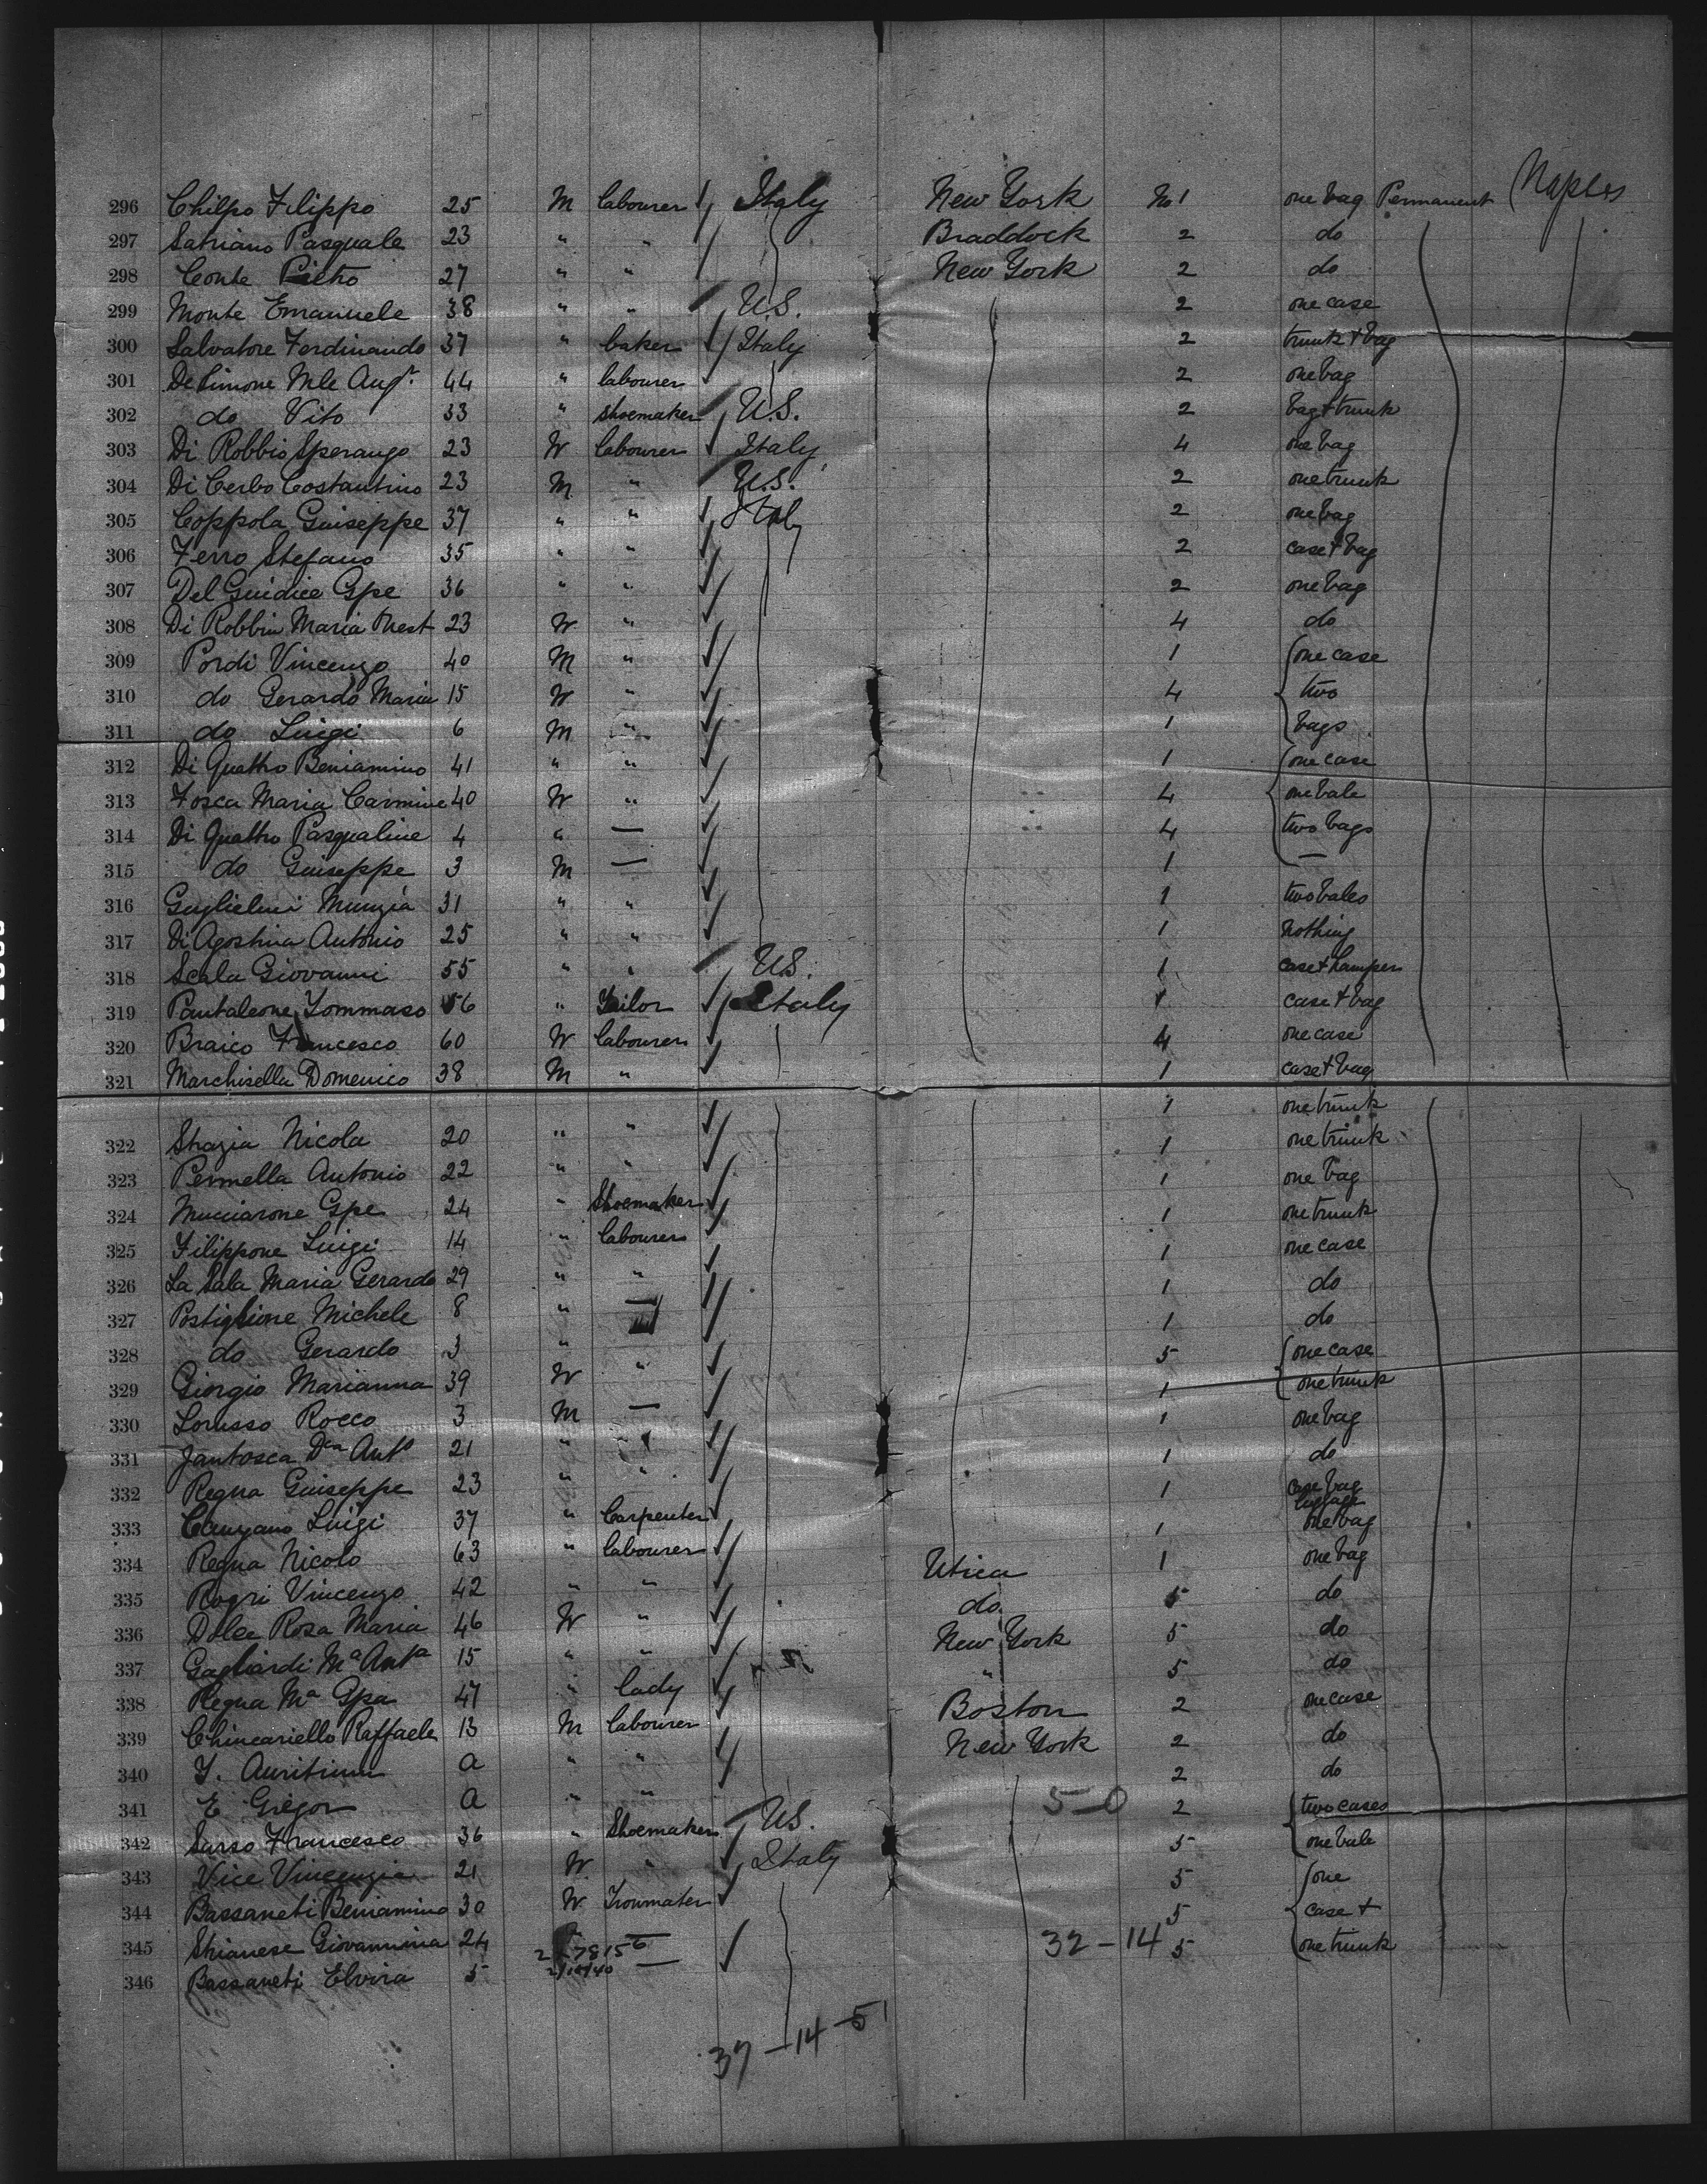 Naples
296 Chilpo Filippo 25 M labourer Italy New York No 1 one bag Permanent
297 Satriano Pasquale 23 " " Braddock 2 do
298 Conte Pietro 27 " " New York 2 do
299 Monte Emanuele 38 " " U.S. 2 one case
300 Salvatore Ferdinando 37 " baker Italy 2 trunk + bag
301 De Simone Mle Aug. 44 " labourer 2 one bag
302 do Vito 33 " shoemaker U.S. 2 bag + trunk
303 Di Robbio Sperango 23 W labourer Italy 4 one bag
304 Di Cerbo Costantino 23 M " U.S. 2 one trunk
305 Coppola Guiseppe 37 " " Italy 2 one bag
306 Ferro Stefano 35 " " 2 case + bag
307 Del Guidice Gpe 36 " " 2 one bag
308 Di Robbin Maria 23 W " 4 do
309 Pordi Vincenzo 40 M " 1 one case
310 do Gerardo Maria 15 W " 4 two
311 do Luigi 6 M " 1 bags
312 Di Quattro Beniamino 41 " " 1 one case
313 Fosca Maria Carmine 40 W " 4 one bale
314 Di Quattro Pasqualine 4 " — 4 two bags
315 do Guiseppe 3 M — 1 —
316 Guglielmi Munzia 31 " " 1 two bales
317 Di Agostina Antonio 25 " " 1 nothing
318 Scala Giovanni 55 " " U.S. 1 case + hamper
319 Pantaleone Tommaso 56 " Tailor Italy 1 case + bag
320 Braico Francesco 60 W labourer 4 one case
321 Marchisella Domenico 38 M " 1 case + bag
1 one trunk
322 Strazia Nicola 20 " " 1 one trunk
323 Permella Antonio 22 " " 1 one bag
324 Mucciarone Gpe 24 " Shoemaker 1 one trunk
325 Filippone Luigi 14 " labourer 1 one case
326 La Sala Maria Gerardo 29 " " 1 do
327 Postiglione Michele 8 " — 1 do
328 do Gerardo 3 " " 5 one case
329 Giorgio Marianna 39 W 1 one trunk
330 Lorusso Rocco 3 M — 1 one bag
331 Jantosca Antº 21 " 1 do
332 Regna Guiseppe 23 " " 1 case bag luggage
333 Canzano Luigi 37 " Carpenter 1 one bag
334 Regna Nicolo 63 " labourer Utica 1 one bag
335 Rogri Vincenzo 42 " " do 5 do
336 Dolce Rosa Maria 46 W " New York 5 do
337 Gagliardi Mª Antª 15 " " " 5 do
338 Regna Mª Gpa 47 " lady Boston 2 one case
339 Chincariello Raffaele 13 M labourer New York 2 do
340 Y. Auritium a " " 2 do
341 E Gregor a " " 5-0 2 two cases
342 Surso Francesco 36 " Shoemaker U.S. 5 one bale
343 Vice Vincenzia 21 W " Italy 5 one
344 Bassaneti Beniamino 30 W Ironmaker 5 case +
345 Strianese Giovannina 24 — 32-14 5 one trunk
346 Bassaneti Elvira 5 —
37-14-51